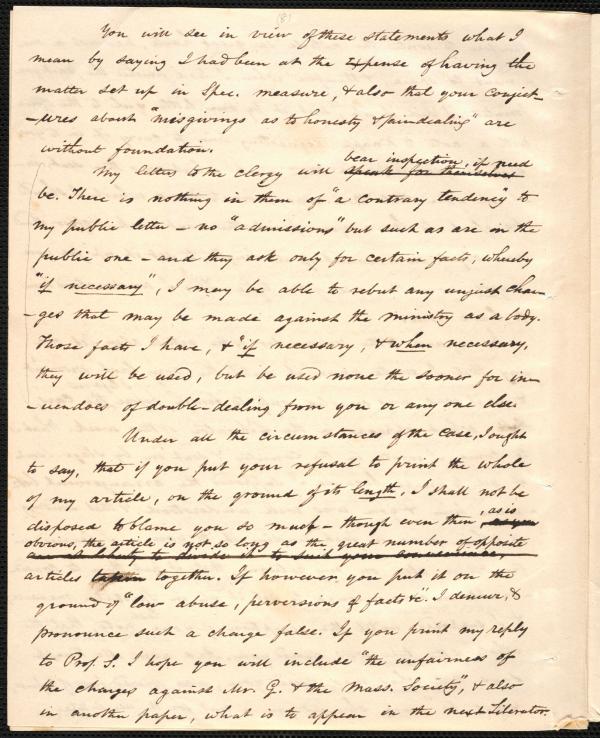 (8)
You will see in view of these statements what I
mean by saying I had been at the expense of having the
matter set up in Spec. measure, & also that your conject-
-ures about "misgivings as to honesty & fairdealing" are
without foundation.
My letters to the clergy will speak for themselves bear inspection, if need
be. There is nothing in them of "a contrary tendency" to
my public letter – no "admissions" but such as are in the
public one – and they ask only for certain facts, whereby
"if necessary", I may be able to rebut any unjust char-
-ges that may be made against the ministry as a body.
Those facts I have, & "if necessary, & when necessary,
they will be used, but be used none the sooner for in-
-uendoes of double-dealing from you or any one else.
Under all the circumstances of the case, I ought
to say, that if you put your refusal to print the whole
of my article, on the ground of its length, I shall not be
disposed to blame you so much – though even then, as you , as is
obvious, the article is not so long as the great number of opposite
are at liberty to divide it to suit your convenience,
articles taken together. If however you put it on the
ground of "low abuse, perversions of facts &c". I demur, &
pronounce such a charge false. If you print my reply
to Prof. S. I hope you will include "the unfairness of
the charges against Mr. G. & the Mass. Society", & also
in another paper, what is to appear in the next Liberator.